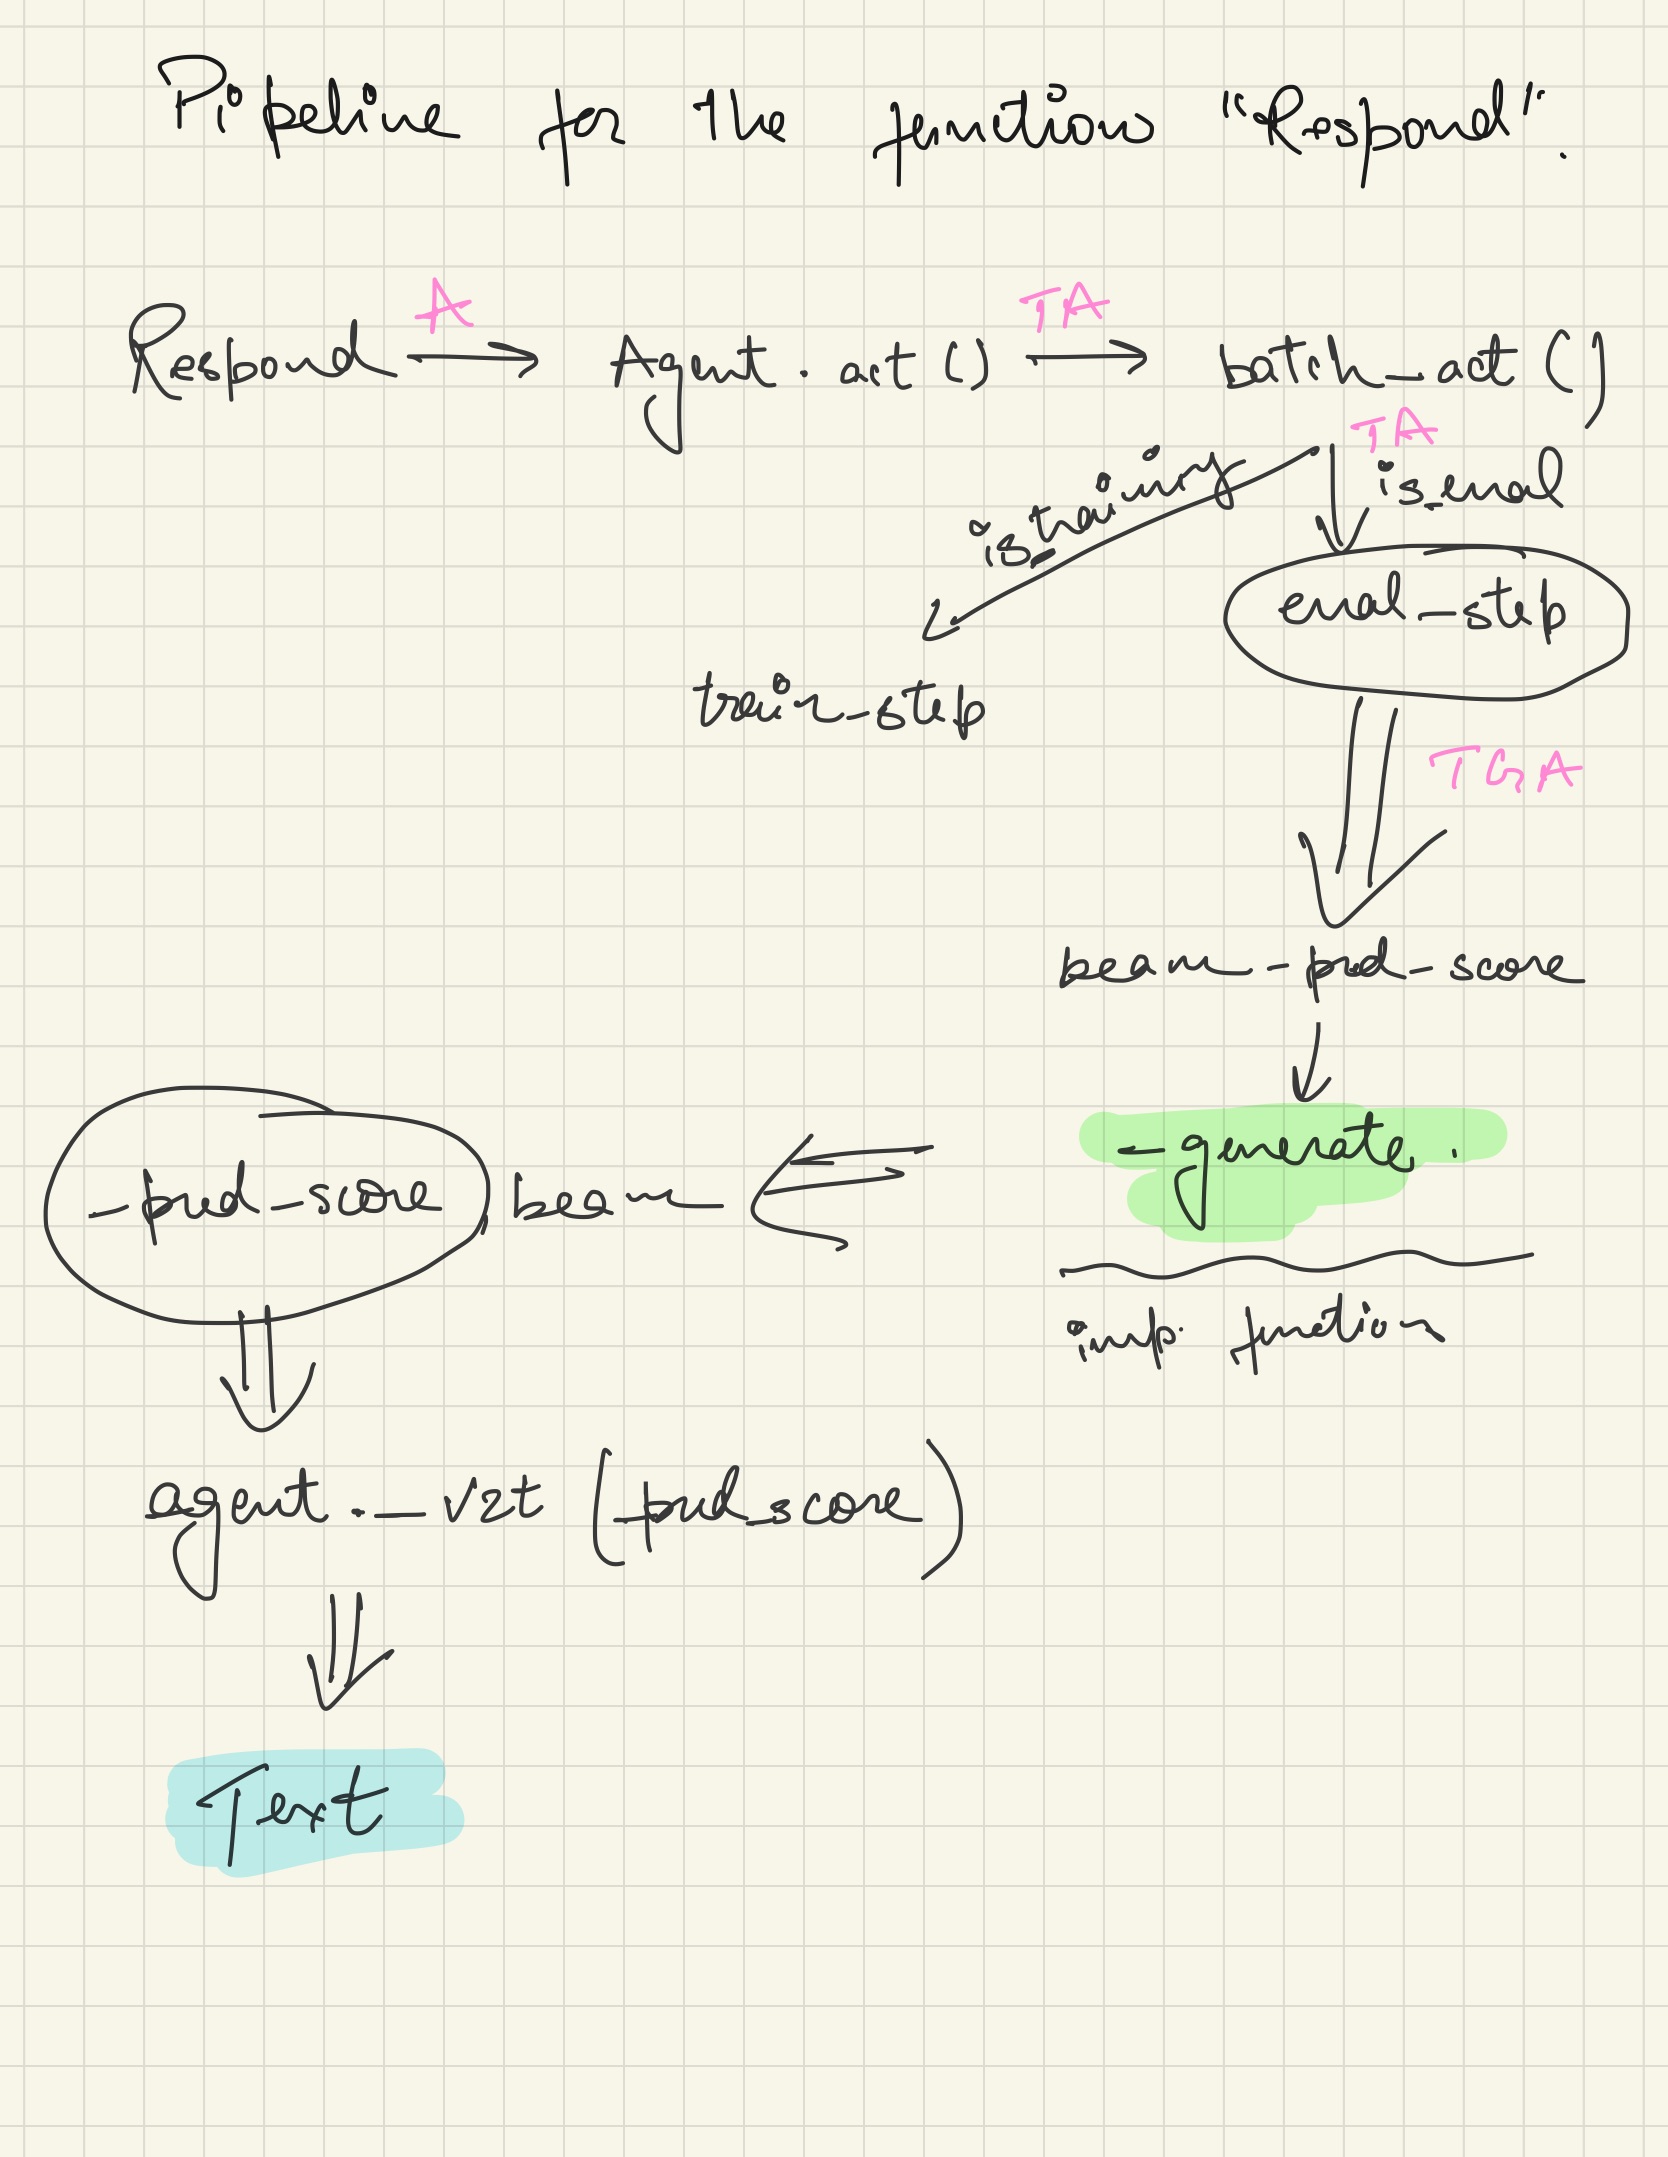 Pipeline for the functions "Respond".
A TA
Respond → Agent.act() → batch_act()
TA
is_training is_eval
eval_step
train_step
TGA
beam-pred-score
_generate.
_pred_score, beam
imp. function
agent._v2t (_pred_score)
Text